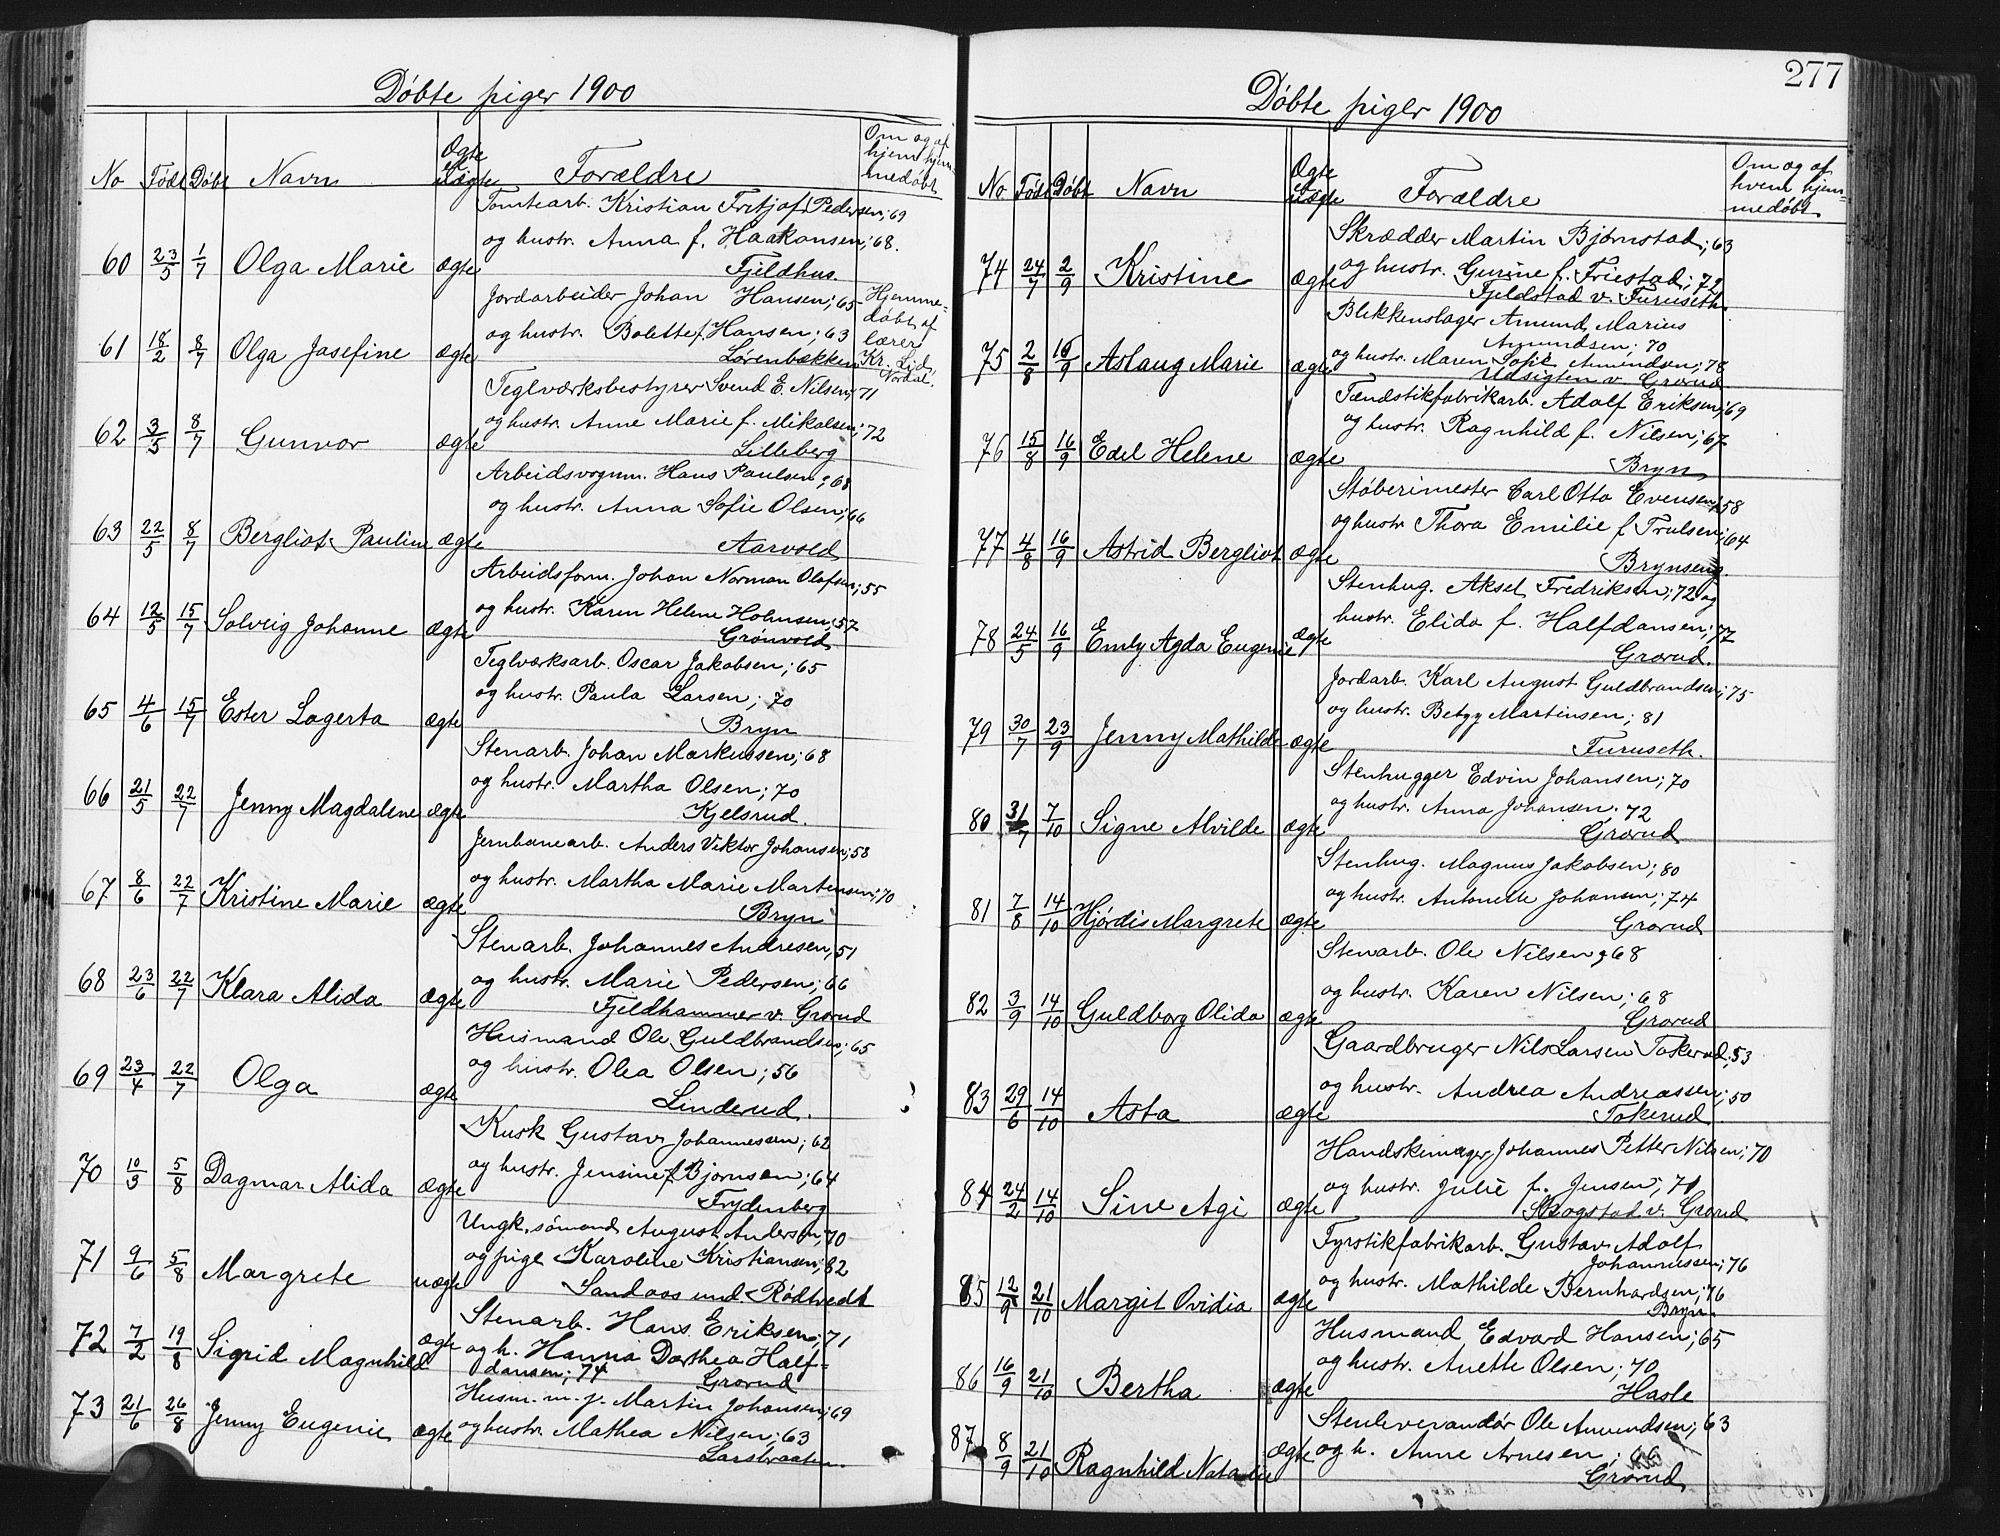 Døbte piger 1900
No Født Døbt Navn Ægte el. Uægte Forældre Om og af hvem hjemmedøbt
Tomtearb. Kristian Fritjof Pedersen; 69
og hustr. Anna f. Haakonsen; 68.
60 23/5 1/7 Olga Marie ægte Fjeldhus.
Jordarbeider Johan Hansen; 65 Hjemme-
døbt af
og hustr. Bolette f. Hansen; 63 lærer
61 18/2 8/7 Olga Josefine ægte Lørenbækken Kr. Lid,
Nordal.
Teglværksbestyrer Svend E. Nilsen; 71
og hustr. Anne Marie f. Mikalsen; 72
62 3/5 8/7 Gunvor ægte Lilleberg
Arbeidsvognm. Hans Paulsen; 68
og hustr. Anna Sofie Olsen; 66
63 22/5 8/7 Bergliot Pauline ægte Aarvold
Arbeidsform. Johan Norman Olafsen; 55
og hustr. Karen Helene Holmsen; 57
64 12/5 15/7 Solveig Johanne ægte Grønvold
Teglværksarb. Oscar Jakobsen; 65
og hustr. Paula Larsen; 70
65 4/6 15/7 Ester Lagerta ægte Bryn
Stenarb. Johan Markussen; 68
og hustr. Martha Olsen; 70
66 21/5 22/7 Jenny Magdalene ægte Kjelsrud.
Jernbanearb. Anders Viktor Johansen; 58
og hustr. Martha Marie Martensen; 70
67 8/6 22/7 Kristine Marie ægte Bryn
Stenarb. Johannes Andresen, 51
og hustr. Marie Pedersen; 66
68 23/6 22/7 Klara Alida ægte Fjeldhammer v. Grorud
Husmand Ole Guldbrandsen; 65
og hustr. Olea Olsen; 56
69 23/4 22/7 Olga ægte Linderud.
Kusk Gustav Johannessen; 62
og hustr. Jensine f. Bjørnsen; 64
70 10/3 5/8 Dagmar Alida ægte Frydenberg
Ungk. sømand August Andersen, 70
og pige Karoline Kristiansen; 82
71 9/6 5/8 Margrete uægte Sandaas und. Rødtvedt
Stenarb. Hans Eriksen; 71
72 7/2 19/8 Sigrid Magnhild ægte og h. Hanna Dorthea Half-
dansen; 74 Grorud
Husm. m. j. Martin Johansen; 69
73 21/6 26/8 Jenny Eugenie ægte og hustr. Mathea Nilsen; 63
Larsbraaten.
277
Døbte piger 1900
No Født Døbt Navn Ægte el. uægte Forældre Om og af hvem hjem-
medøbt
Skrædder Martin Bjørnstad; 63
74 24/7 2/9 Kristine ægte og hustr. Gurine f. Friestad; 72
Fjeldstad v. Furuseth.
Blikkenslager Amund Marius
Amundsen; 70
75 2/8 16/9 Aslaug Marie ægte og hustr. Maren Sofie Amundsen; 78
Udsigten v. Grorud
Tændstikfabrikarb. Adolf Eriksen; 69
og hustr. Ragnhild f. Nilsen; 67
76 15/8 16/9 Edel Helene ægte Bryn
Støberimester Carl Otto Evensen; 58
og hustr. Thora Emilie f. Trulsen; 64
77 4/8 16/9 Astrid Bergliot ægte Brynseng.
Stenhug. Aksel Fredriksen; 72 og
hustr. Elida f. Halfdansen; 77
78 24/5 16/9 Emly Agda Eugenie ægte Grorud.
Jordarb. Karl August Guldbrandsen; 75
og hustr. Betzy Martinsen; 81
79 30/7 23/9 Jenny Mathilde ægte Furuseth.
Stenhugger Edvin Johansen; 70
og hustr. Anna Johansen; 72
80 31/7 7/10 Signe Alvilde ægte Grorud
Stenhug. Magnus Jakobsen; 80
og hustr. Antonette Johansen; 74
81 7/8 14/10 Hjørdis Margrete ægte Grorud
Stenarb. Ole Nilsen; 68
og hustr. Karen Nilsen; 68
82 3/9 14/10 Guldborg Olida ægte Grorud
Gaardbruger Nils Larsen Tokerud; 53
og hustr. Andrea Andreassen; 50
83 29/6 14/10 Asta ægte Tokerud
Handskemager Johannes Petter Nilsen; 70
og hustr. Julie f. Jensen; 71
84 24/2 14/10 Sine Agi ægte Skogstad v. Grorud
Fyrstikfabrikarb. Gustav Adolf
Johannessen; 76
og hustr. Mathilde Bernhardsen; 76
85 12/9 21/10 Margit Ovidia ægte Bryn.
Husmand Edvard Hansen; 65
og hustr. Anette Olsen; 70
86 16/9 21/10 Bertha ægte Hasle
Stenleverandør Ole Amundsen; 63
87 8/9 21/10 Ragnhild Natalie ægte og h. Anne Arnesen; 66
Grorud